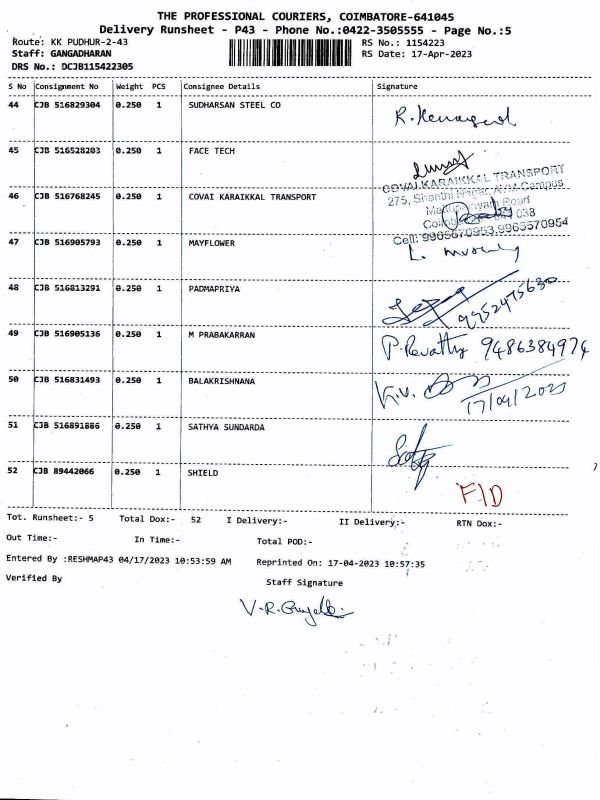 THE PROFESSIONAL COURIERS, COIMBATORE-641045
Delivery Runsheet - P43 - Phone No.:0422-3505555 - Page No.:5
Route: KK PUDHUR-2-43 RS No.: 1154223
Staff: GANGADHARAN RS Date: 17-Apr-2023
DRS No.: DCJB115422305
S No Consignment No Weight PCS Consignee Details Signature
44 CJB 516829304 0.250 1 SUDHARSAN STEEL CO
45 CJB 516528203 0.250 1 FACE TECH
COVAI KARAIKKAL TRANSPORT
275, Shanthi Nagar, AVM Campus
46 CJB 516768245 0.250 1 COVAI KARAIKKAL TRANSPORT
Road
038
Cell: 9965570953,9965570954
47 CJB 516905793 0.250 1 MAYFLOWER
48 CJB 516813291 0.250 1 PADMAPRIYA 9952475630
49 CJB 516905136 0.250 1 M PRABAKARRAN P. Revathy 9486384974
50 CJB 516831493 0.250 1 BALAKRISHNANA K.V. 17/04/2023
51 CJB 516891886 0.250 1 SATHYA SUNDARDA
52 CJB 89442066 0.250 1 SHIELD F/D
Tot. Runsheet:- 5 Total Dox:- 52 I Delivery:- II Delivery:- RTN Dox:-
Out Time:- In Time:- Total POD:-
Entered By :RESHMAP43 04/17/2023 10:53:59 AM Reprinted On: 17-04-2023 10:57:35
Verified By Staff Signature